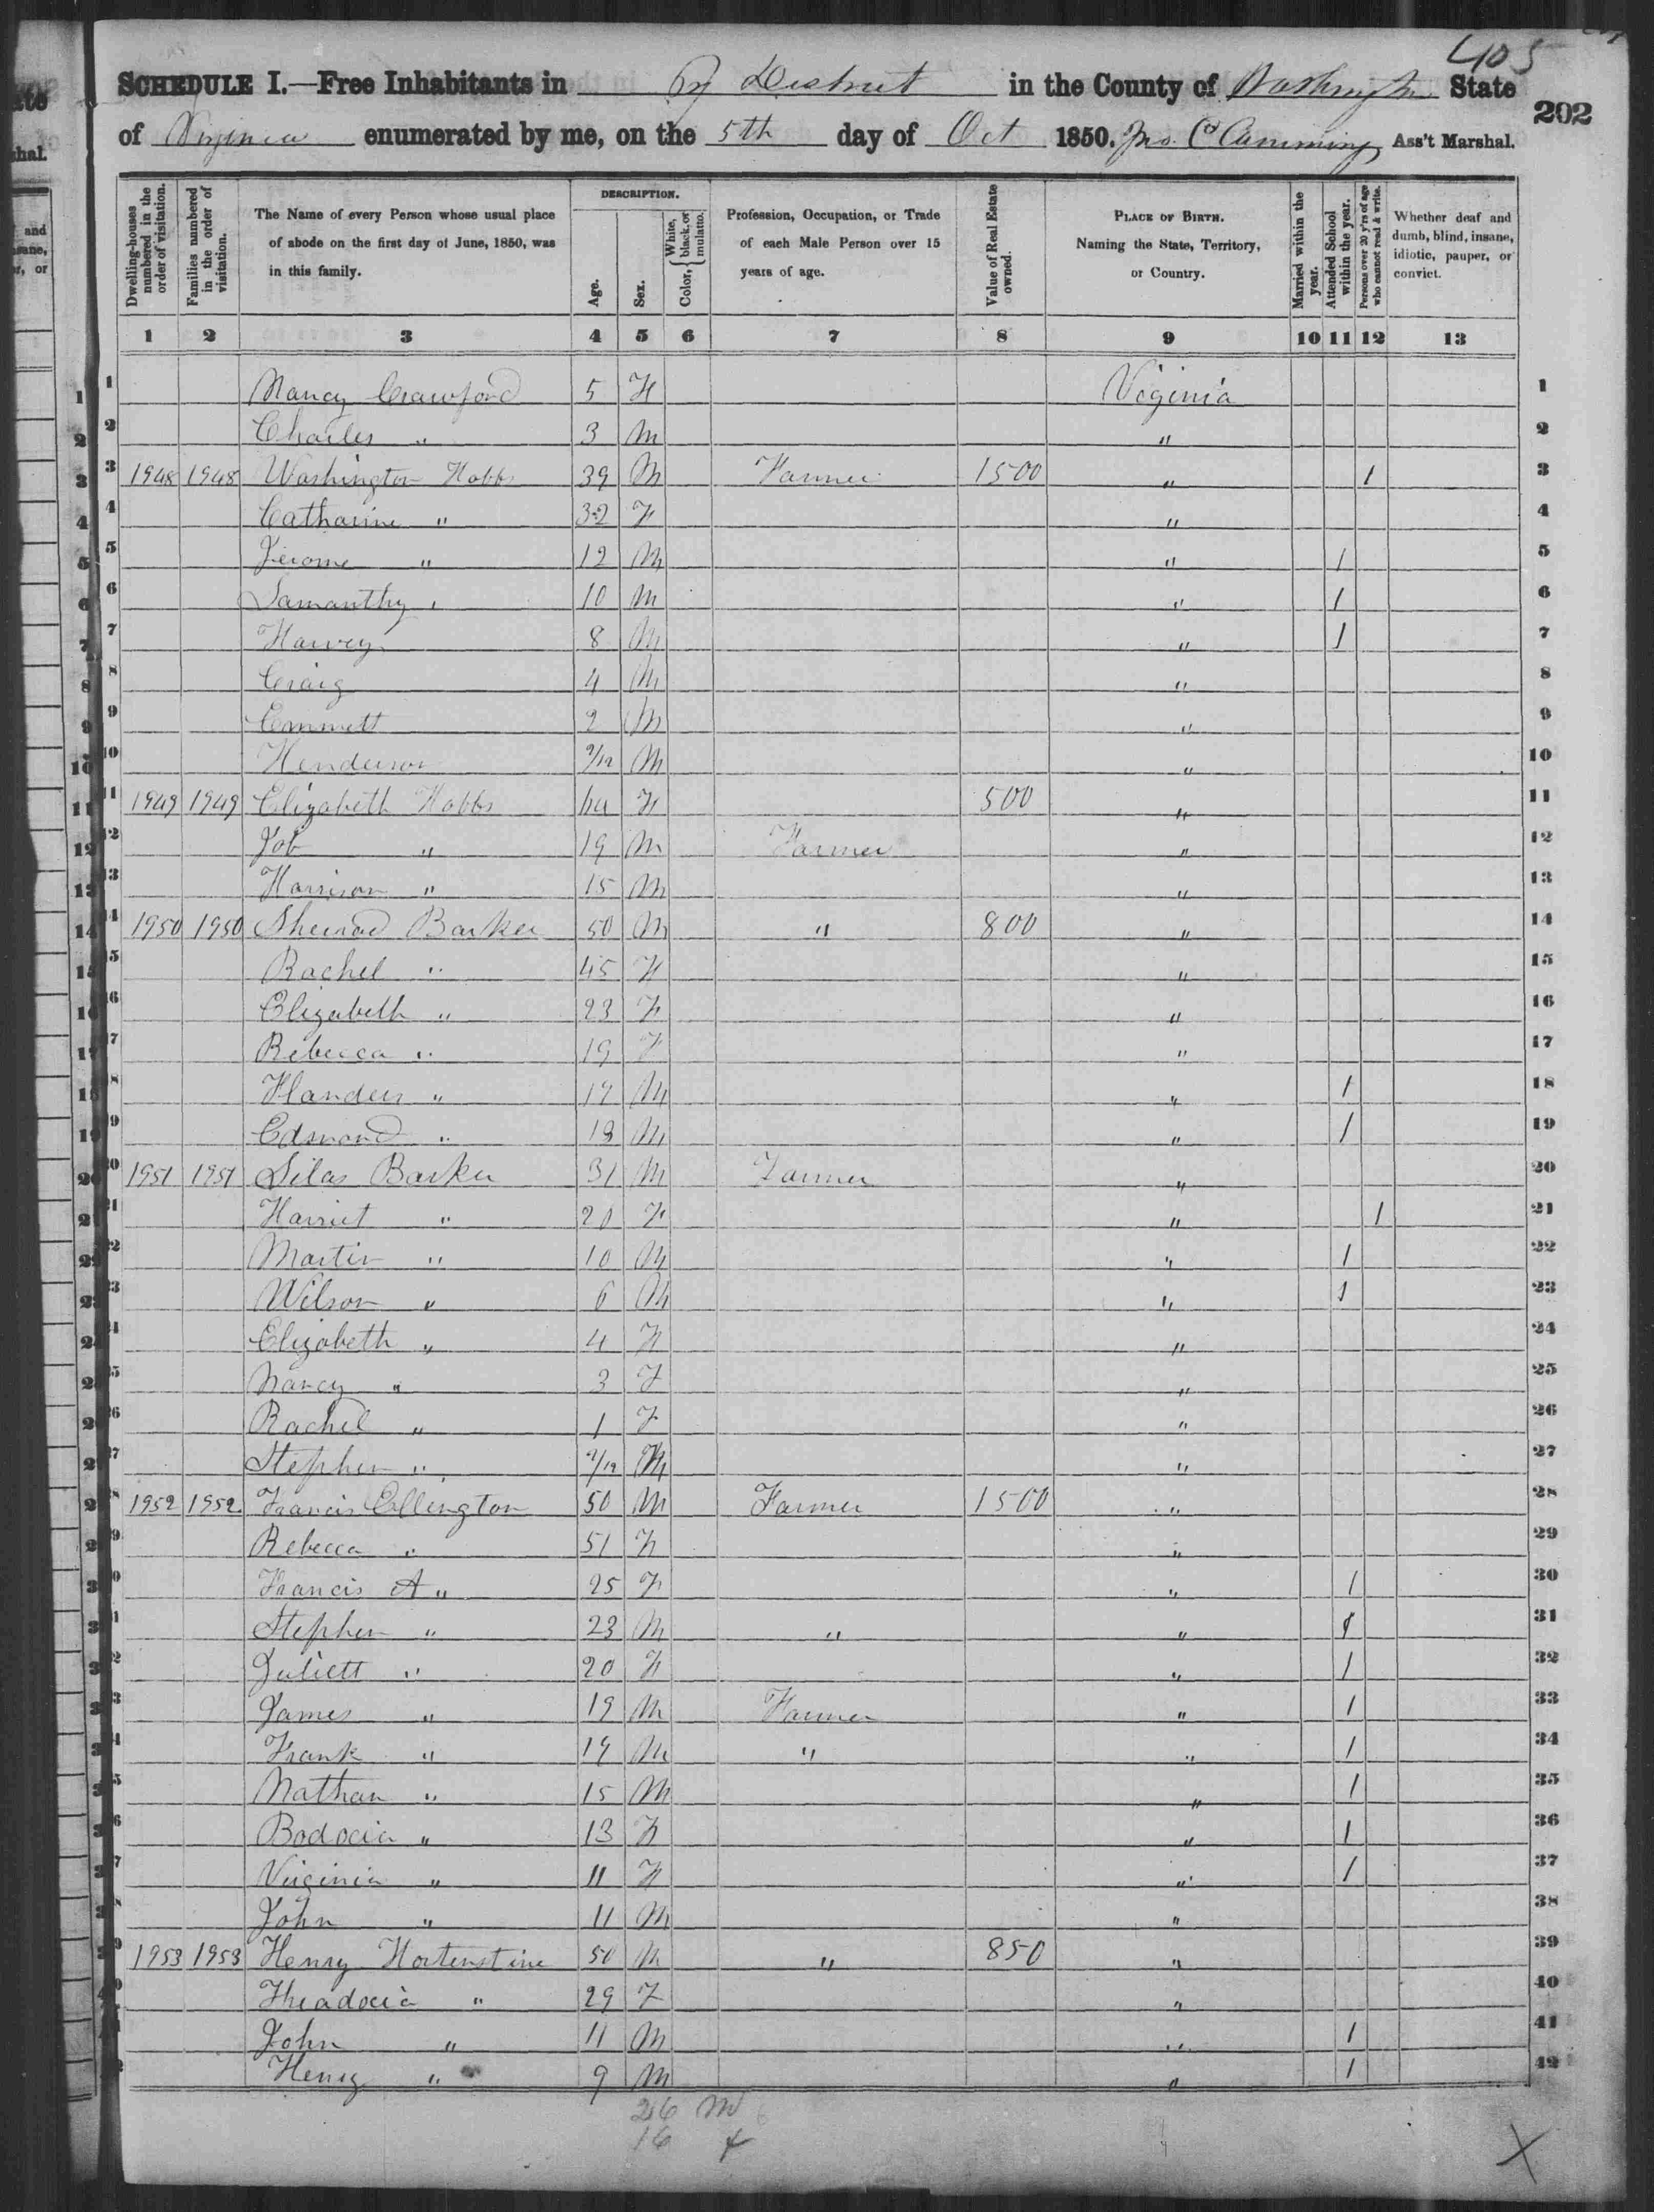 405
SCHEDULE I.—Free Inhabitants in District in the County of Washington State
202
of Virginia enumerated by me, on the 5th day of Oct 1850. Jno. C Cumming Ass't Marshal.
Dwelling-houses numbered in the order of visitation.
Families numbered in the order of visitation.
The Name of every Person whose usual place of abode on the first day of June, 1850, was in this family.
DESCRIPTION.
Age.
Sex.
Color, { White, black, or mulatto.
Profession, Occupation, or Trade of each Male Person over 15 years of age.
Value of Real Estate owned.
PLACE OF BIRTH. Naming the State, Territory, or Country.
Married within the year.
Attended School within the year.
Persons over 20 y'rs of age who cannot read & write.
Whether deaf and dumb, blind, insane, idiotic, pauper, or convict.
1 2 3 4 5 6 7 8 9 10 11 12 13
1 Nancy Crawford 5 F Viginia 1
2 Charles " 3 M " 2
3 1948 1948 Washington Hobbs 39 M Farmer 1500 " 1 3
4 Catharine " 32 F " 4
5 Jerome " 12 M " 1 5
6 Samanthy " 10 M " 1 6
7 Harvey 8 M " 1 7
8 Craig 4 M " 8
9 Emmett 2 M " 9
10 Henderson /12 M " 10
11 1949 1949 Elizabeth Hobbs F 500 " 11
12 Job " 19 M Farmer " 12
13 Harrison " 15 M " 13
14 1950 1950 Sherrod Barker 50 M " 800 " 14
15 Rachel " 45 F " 15
16 Elizabeth " 23 F " 16
17 Rebecca " 19 F " 17
18 Flanders " 17 M " 1 18
19 Edmond " 13 M " 1 19
20 1951 1951 Silas Barker 31 M Farmer " 20
21 Harriet " 20 F " 1 21
22 Martin " 10 M " 1 22
23 Wilson " 6 M " 1 23
24 Elizabeth " 4 F " 24
25 Nancy " 3 F " 25
26 Rachel " 1 F " 26
27 Stephen " /12 M " 27
28 1952 1952 Francis Ellington 50 M Farmer 1500 " 28
29 Rebecca " 51 F " 29
30 Francis A " 25 F " 1 30
31 Stephen " 23 M " " 1 31
32 Juliett " 20 F " 1 32
33 James " 19 M Farmer " 1 33
34 Frank " 17 M " " 1 34
35 Nathan " 15 M " 1 35
36 Bodocia " 13 F " 1 36
37 Virginia " 11 F " 1 37
38 John " 11 M " 38
39 1953 1953 Henry Hortenstine 50 M " 850 " 39
40 Theadocia " 29 F " 40
41 John " 11 M " 1 41
42 Henry " 9 M " 1 42
26 M
16 f